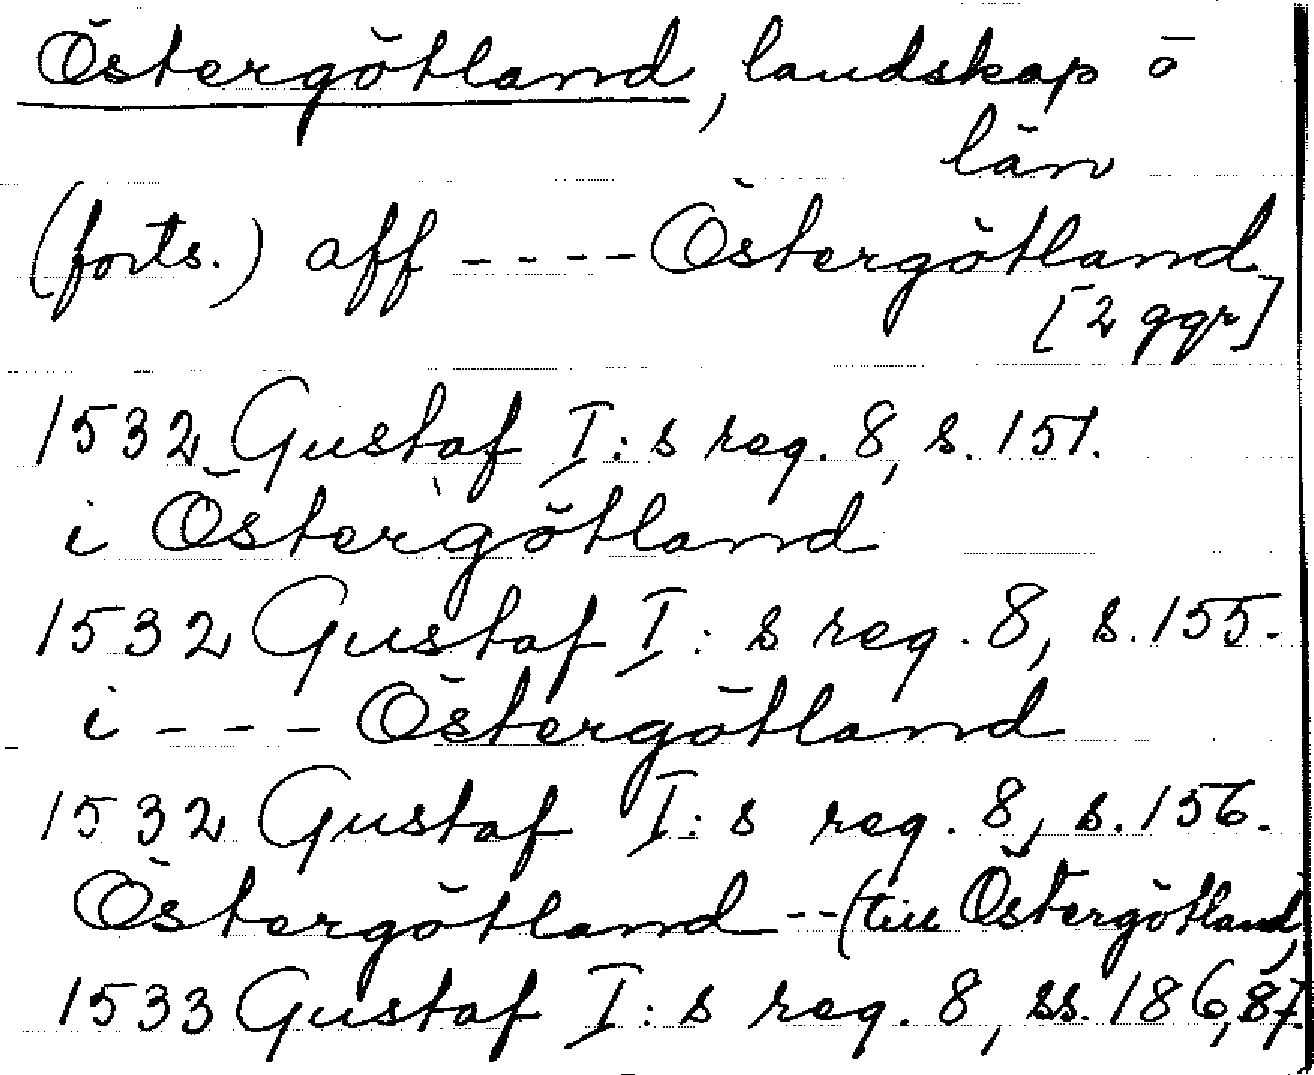 Östergötland, landskap o
län
(forts.) aff ---- Östergötland
[2 ggr]
1532 Gustaf I:s reg. 8, s. 151.
i Östergötland
1532 Gustaf I:s reg. 8, s. 155.
i --- Östergötland
1532 Gustaf I:s reg. 8, s. 156.
Östergötland -- (till Östergötland)
1533 Gustaf I:s reg. 8, ss. 186, 87.